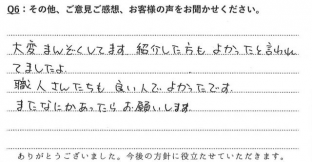 Q6：その他、ご意見ご感想、お客様の声をお聞かせください。
大変まんぞくしてます。紹介した方も よかったと言われ
てましたよ。
職人さんたちも 良い人で よかったです。
またなにかあったら お願いします。
ありがとうございました。今後の方針に役立たせていただきます。